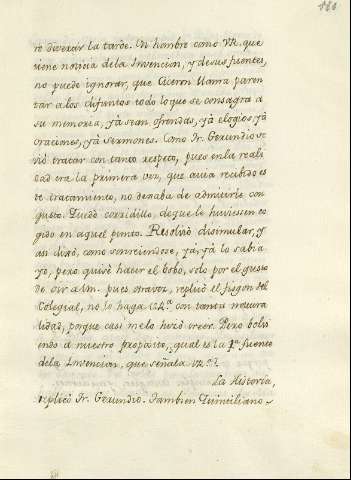 180
ró divexar la tarde. Un hombre como VR. que
tiene noticia dela Invencion, y desus fuentes,
no puede ignorar, que Ciceron llama paren
tar alos difuntos todo loque se consagra a
su memoria, yà sean ofrendas, yà elogios yà
oraciones, yà sermones. Como Fr. Gerundio se
viò tratar con tanto respeto, pues enla reali
dad era la primera vez, que avia recibido es
te tratamiento, no dexaba de admitirle con
gusto. Quedó corridillo, deque le huviessen co
gido en aquel punto. Resolviò disimular, y
asi dixò, como sonrriendose, yà, yà lo sabia
yo, pero quise hacer el bobo, solo por el gusto
de oir a Vm. pues otravez, replicó el fisgon del
Colegial, no lo haga
con tanta natura
lidad, porque casi melo hizó creer. Pero bolvi
endo a nuestro proposito, qual es la 1ª fuente
dela Invencion, que señala
La Historia,
replicó Fr. Gerundio. Tambien Quinciliano